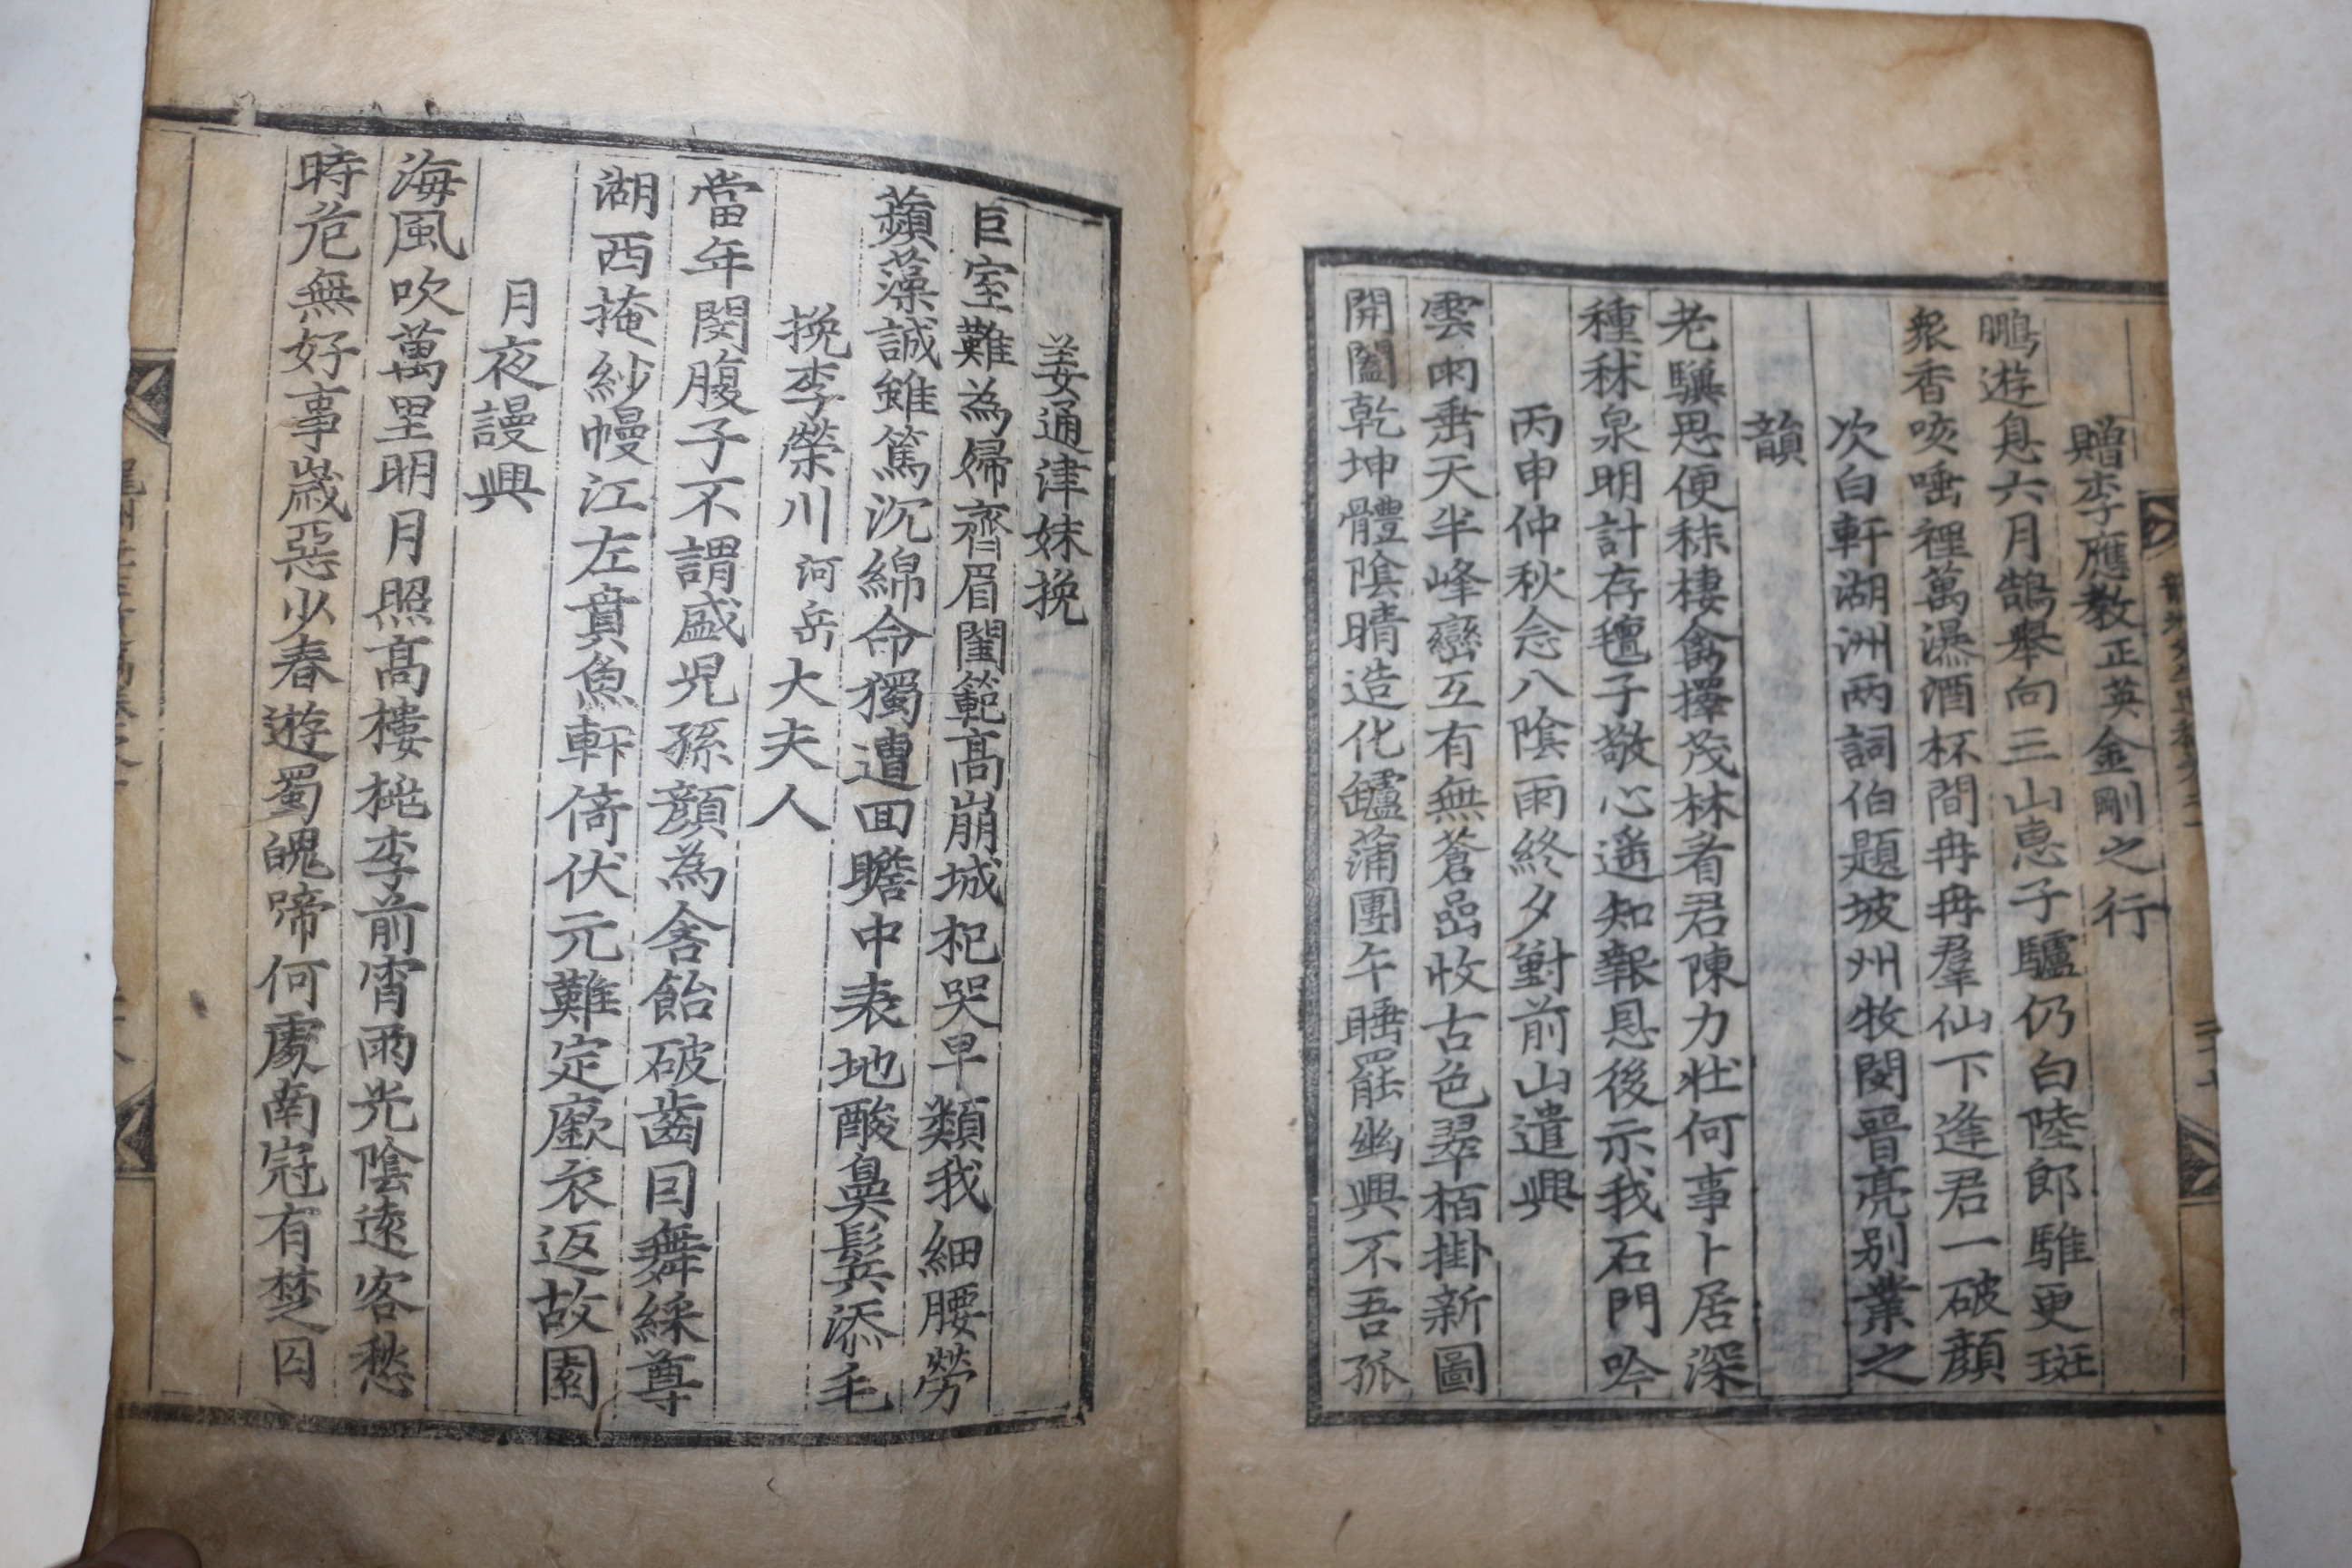 贈李應教正英金剛之行
鵬遊息六月鵠舉向三山惠子驢仍白陸郎騅更斑
衆香咳唾裡萬瀑酒杯間冉冉羣仙下逢君一破顔
次白軒湖洲兩詞伯題坡州牧閔晉亮别業之
韻
老驥思便秣棲禽擇茂林看君陳力壯何事卜居深
種秫泉明計存氊子敬心遥知報恩後示我石門吟
丙申仲秋念八陰雨終夕對前山遣興
雲雨垂天半峰巒互有無蒼嵒收古色翠栢掛新圖
開闔乾坤體陰晴造化罏蒲團午睡罷幽興不吾孤
姜通津妹挽
巨室難為婦齊眉閨範高崩城杞哭早類我細腰勞
蘋藻誠雖篤沉綿命獨遭回瞻中表地酸鼻鬂添毛
挽李榮川河岳大夫人
當年閔腹子不謂盛児孫顔為含飴破齒因舞綵尊
湖西掩紗幔江左賁魚軒倚伏元難定廞衣返故園
月夜謾興
海風吹萬里明月照髙樓桃李前宵雨光陰逺客愁
時危無好事歲惡少春遊蜀魄啼何處南冠有楚囚